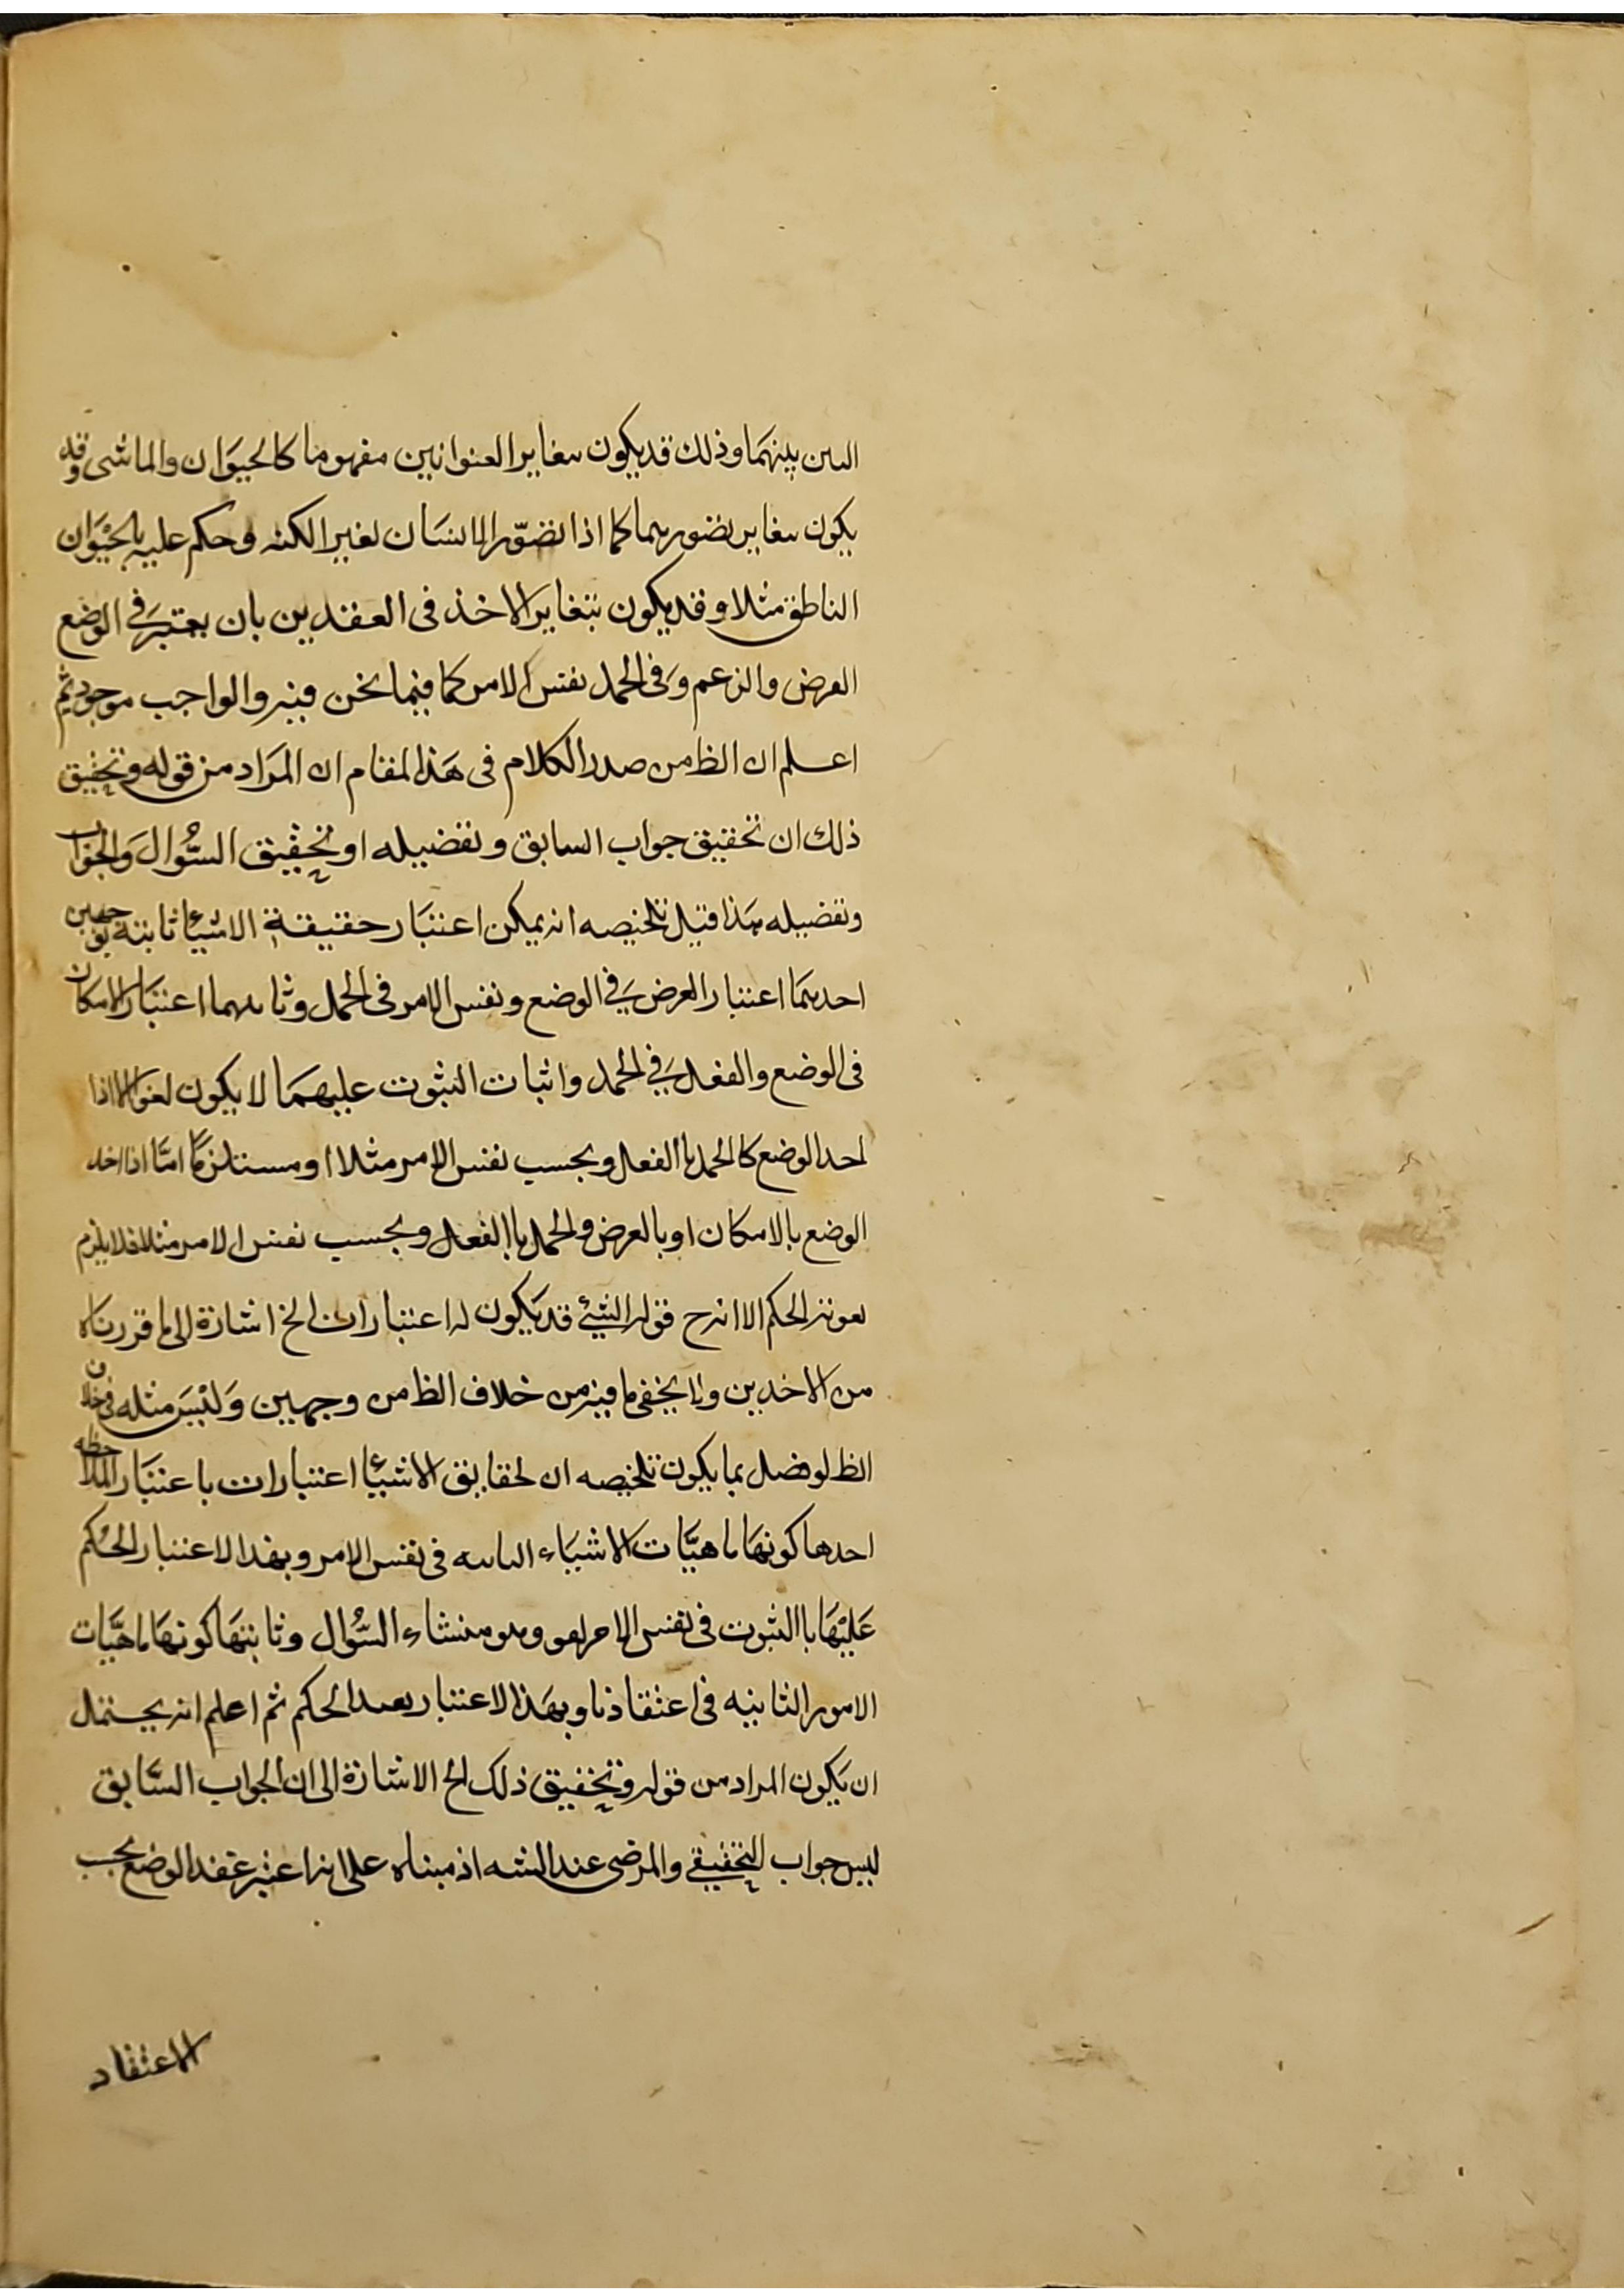 البين بينهما وذلك قد يكون بتغاير العنوانين مفهوما كالحيوان والماشى وقد
يكون بتغاير تصورهما كما اذا تصور الانسان بغير الكنه وحكم عليه بالحيوان
الناطق مثلا وقد يكون بتغاير الاخذ فى العقدين بان يعتبر فى الوضع
الفرض والزعم وفى الحمل نفس الامر كما فيما نحن فيه والواجب موجود ثم
اعلم ان الظ من صدر الكلام فى هذا المقام ان المراد من قوله وتحقيق
ذلك ان تحقيق جواب السابق وتفضيله او تحقيق السؤال والجواب
وتفضيله هذا قيل تلخيصه انه يمكن اعتبار حقيقة الاشيأ ثابتة بوجهين
احدهما اعتبار الفرض فى الوضع ونفس الامر فى الحمل وثانيهما اعتبار الامكان
فى الوضع والفعل فى الحمل واثبات الثبوت عليهما لا يكون لغوا الا اذا
احد الوضع كالحمل باالفعل وبحسب نفس الامر مثلا او مستلزما امّا اذا اخد
الوضع بالامكان او بالفرض والحمل باالفعل وبحسب نفس الامر مثلا فلا يلزم
لغوية الحكم الا انه ح قوله الشئ قد يكون له اعتبارات الخ اشارة الى ما قررناه
من الاخدين ولا يخفى ما فيه من خلاف الظ من وجهين وليس مثله فى خلاف
الظ لو فصل بما يكون تلخيصه ان لحقايق الاشيأ اعتبارات باعتبار الملاحظه
احدها كونها ماهيّات الاشياء الثابته فى نفس الامر وبهذا الاعتبار الحكم
عليها باالثبوت فى نفس الامر لغو وهو منشاء السّؤال وثانيتها كونها ماهيّات
الامور الثابته فى اعتقادنا وبهذا الاعتبار يفيد الحكم ثم اعلم انه يحتمل
ان يكون المراد من قوله وتحقيق ذلك الخ الاشارة الى ان الجواب السّابق
ليس جواب التحقيقى والمرضى عند الشه اذ مبناه على انه اعتبر عقد الوضع بحب
الاعتقاد